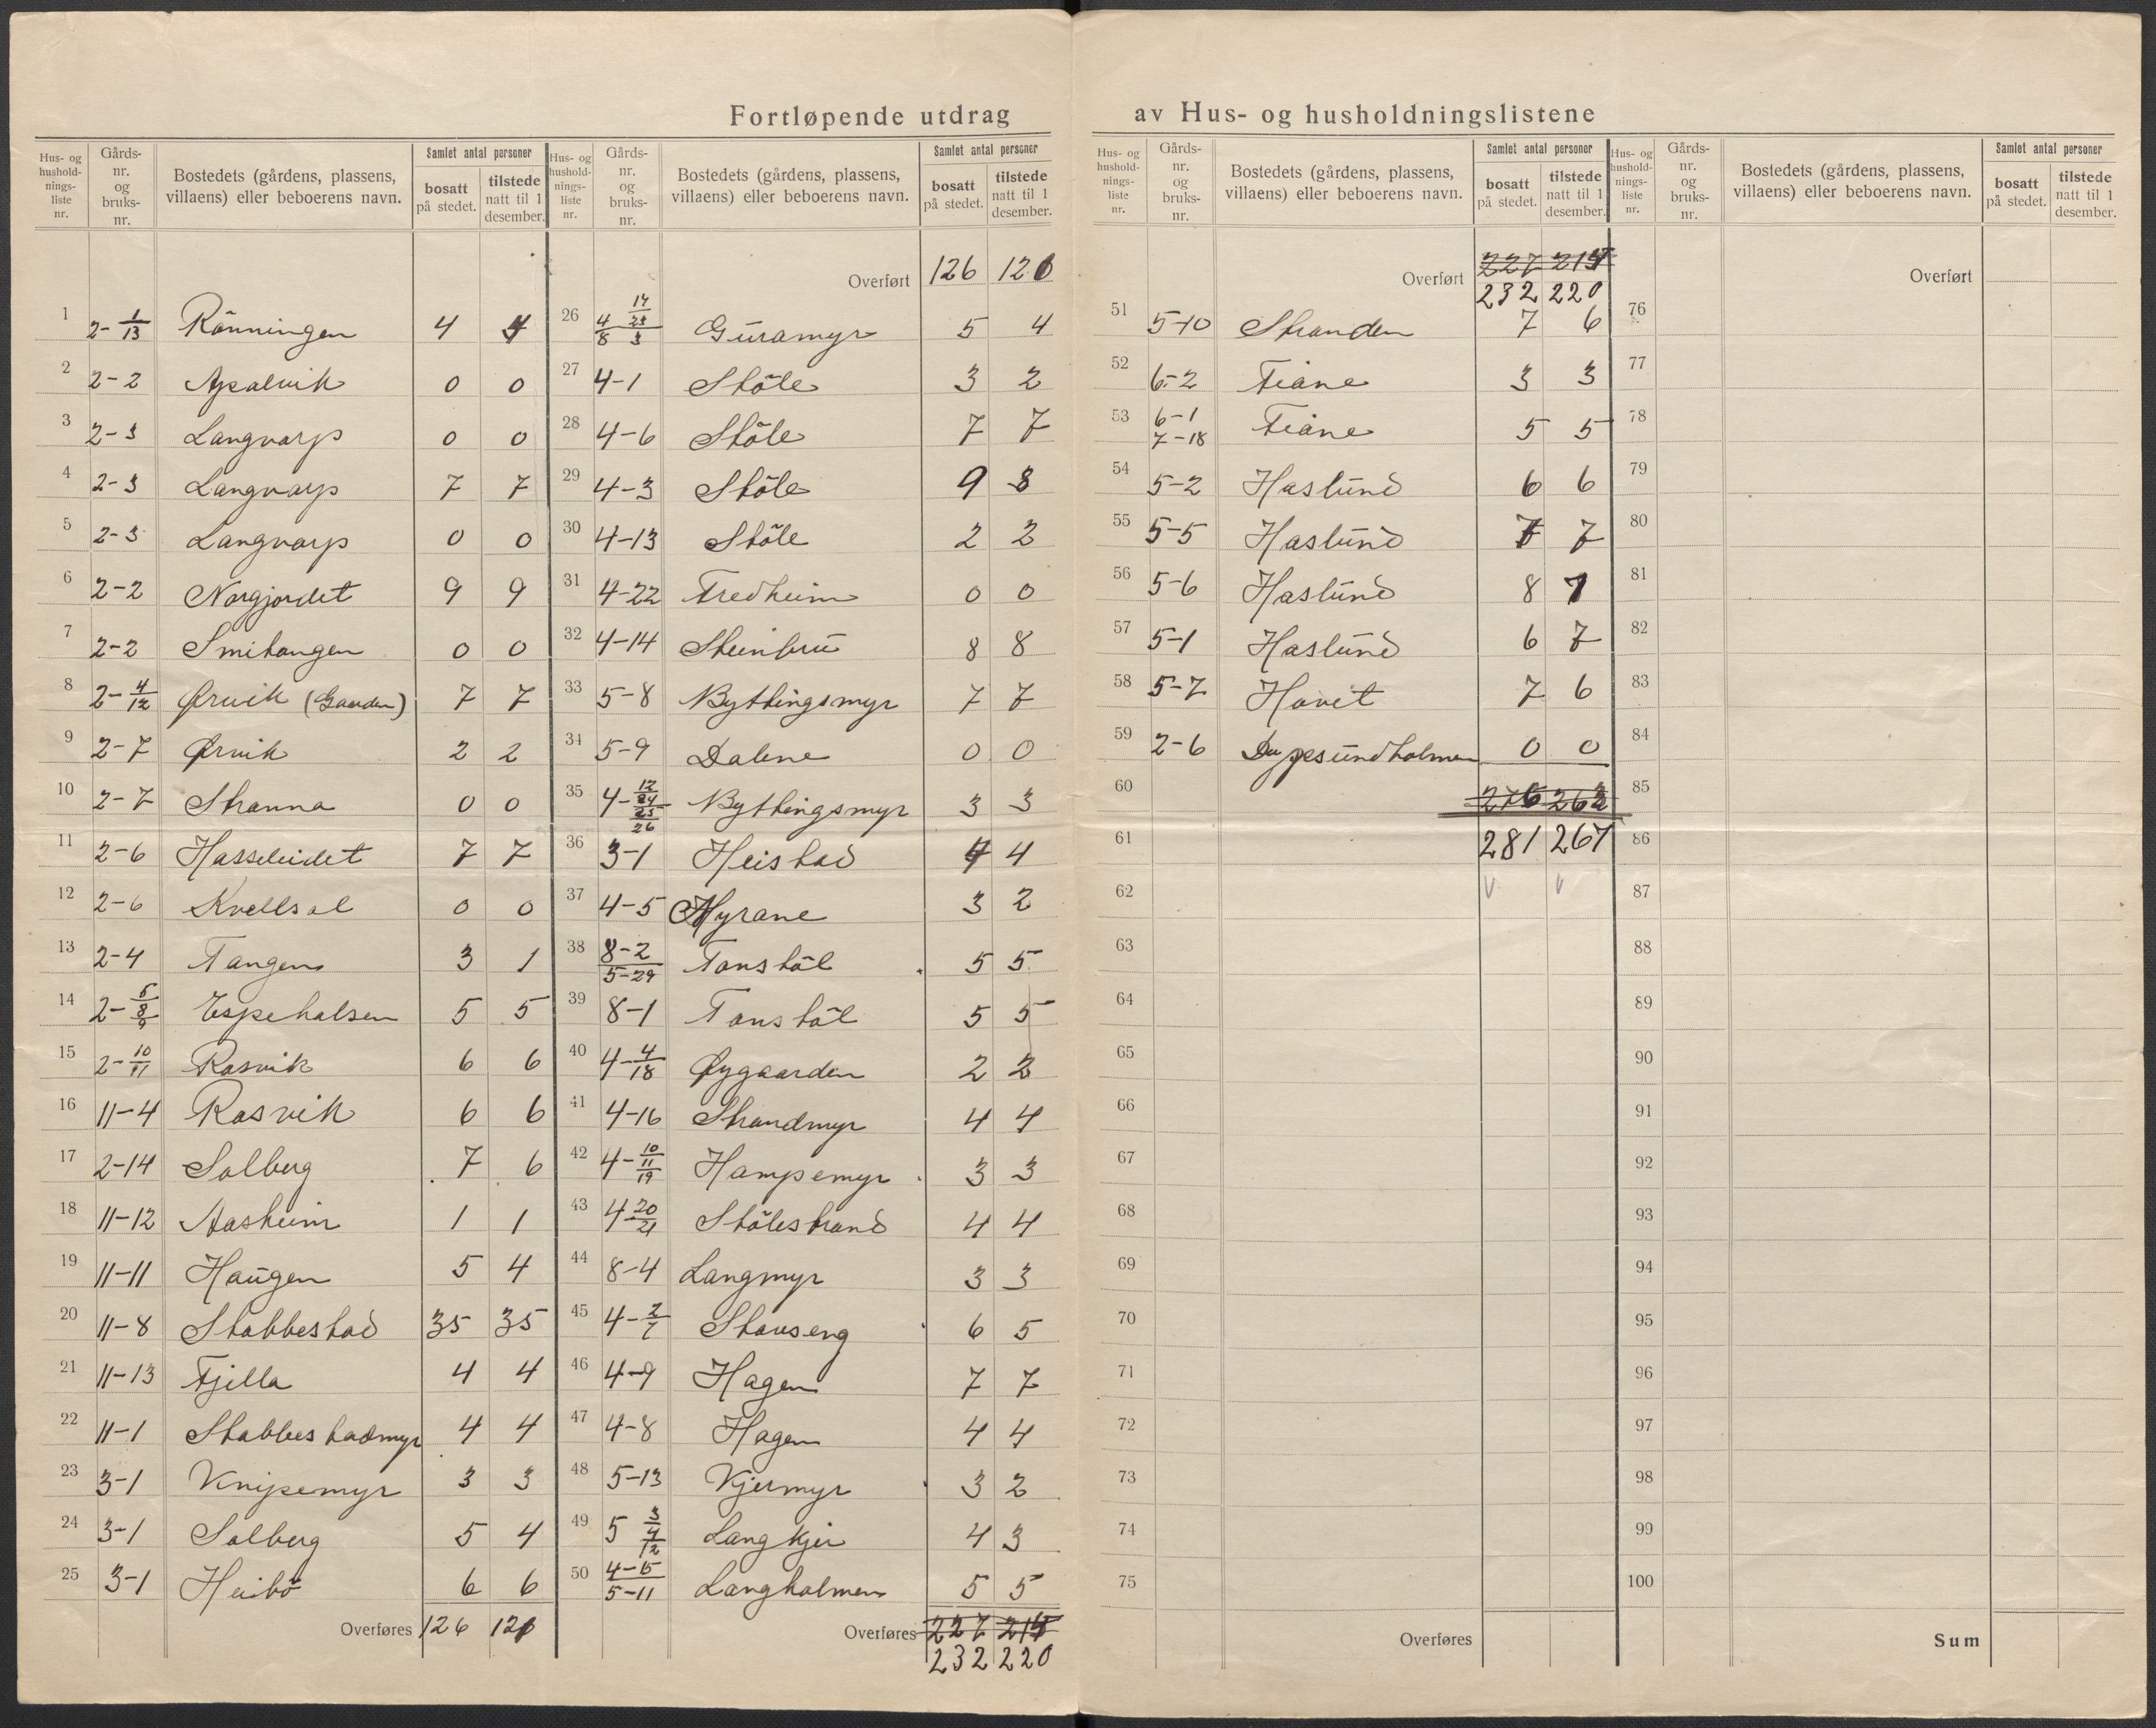 Fortløpende utdrag av Hus- og husholdningslistene
Hus- og husholdningsliste nr. Gårdsnr. og bruksnr. Bostedets (gårdens, plassens, villaens) eller beboerens navn. Samlet antal personer bosatt på stedet. tilstede natt til 1 desember.
1 2-1/13 Rönningen 4 4
2 2-2 Apalvik 0 0
3 2-3 Langvarp 0 0
4 2-3 Langvarp 7 7
5 2-3 Langvarp 0 0
6 2-2 Norgjordet 9 9
7 2-2 Smitangen 0 0
8 2-4/12 Ørvik (Gaarden) 7 7
9 2-7 Ørvik 2 2
10 2-7 Stranna 0 0
11 2-6 Hasseleidet 7 7
12 2-6 Kvellsol 0 0
13 2-4 Tangen 3 1
14 2-5/8/9 Espehalsen 5 5
15 2-10/11 Rosvik 6 6
16 11-4 Rosvik 6 6
17 2-14 Solberg 7 6
18 11-12 Aasheim 1 1
19 11-11 Haugen 5 4
20 11-8 Stabbestad 35 35
21 11-13 Fjella 4 4
22 11-1 Stabbestadmyr 4 4
23 3-1 Knipemyr 3 3
24 3-1 Solberg 5 4
25 3-1 Heibö 6 6
Overføres 126 121
Hus- og husholdningsliste nr. Gårdsnr. og bruksnr. Bostedets (gårdens, plassens, villaens) eller beboerens navn. Samlet antal personer bosatt på stedet. tilstede natt til 1 desember.
Overført 126 121
26 Guramyr 5 4
27 4-1 Stöle 3 2
28 4-6 Stöle 7 7
29 4-3 Stöle 9 8
30 4-13 Stöle 2 2
31 4-22 Fredheim 0 0
32 4-14 Steinbru 8 8
33 5-8 Bythingsmyr 7 7
34 5-9 Dalene 0 0
35 4-12/24/25/26 Bythingsmyr 3 3
36 3-1 Heistad 4 4
37 4-5 Myrane 3 2
38 8-2 5-29 Tonstöl 5 5
39 8-1 Tonstöl 5 5
40 4-4/18 Øygaarden 2 2
41 4-16 Strandmyr 4 4
42 4-10/11/19 Hampemyr 3 3
43 4-20/21 Stölestrand 4 4
44 8-4 Langmyr 3 3
45 4-2/7 Stauseng 6 5
46 4-9 Hagen 7 7
47 4-8 Hagen 4 4
48 5-13 Kjermyr 3 2
49 5 3/4/12 Langkjer 4 3
50 4-15 5-11 Langholmen 5 5
Overføres 227
232 220
Hus- og husholdningsliste nr. Gårdsnr. og bruksnr. Bostedets (gårdens, plassens, villaens) eller beboerens navn. Samlet antal personer bosatt på stedet. tilstede natt til 1 desember.
Overført 227
232 220
51 5-10 Stranden 7 6
52 6-2 Fiane 3 3
53 6-1 7-18 Fiane 5 5
54 5-2 Haslund 6 6
55 5-5 Haslund 7 7
56 5-6 Haslund 8 7
57 5-1 Haslund 6 7
58 5-7 Hovet 7 6
59 2-6 0 0
60 276 262
61 281 267
62
63
64
65
66
67
68
69
70
71
72
73
74
75
Overføres
Hus- og husholdningsliste nr. Gårdsnr. og bruksnr. Bostedets (gårdens, plassens, villaens) eller beboerens navn. Samlet antal personer bosatt på stedet. tilstede natt til 1 desember.
Overført
76
77
78
79
80
81
82
83
84
85
86
87
88
89
90
91
92
93
94
95
96
97
98
99
100
Sum